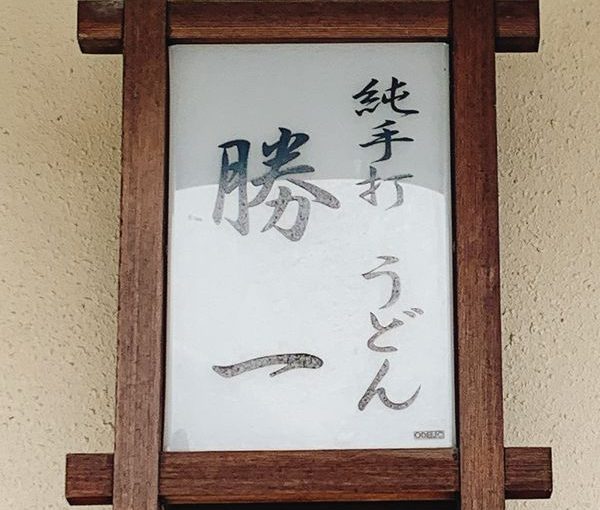 純手打 うどん
勝一
ODELIC